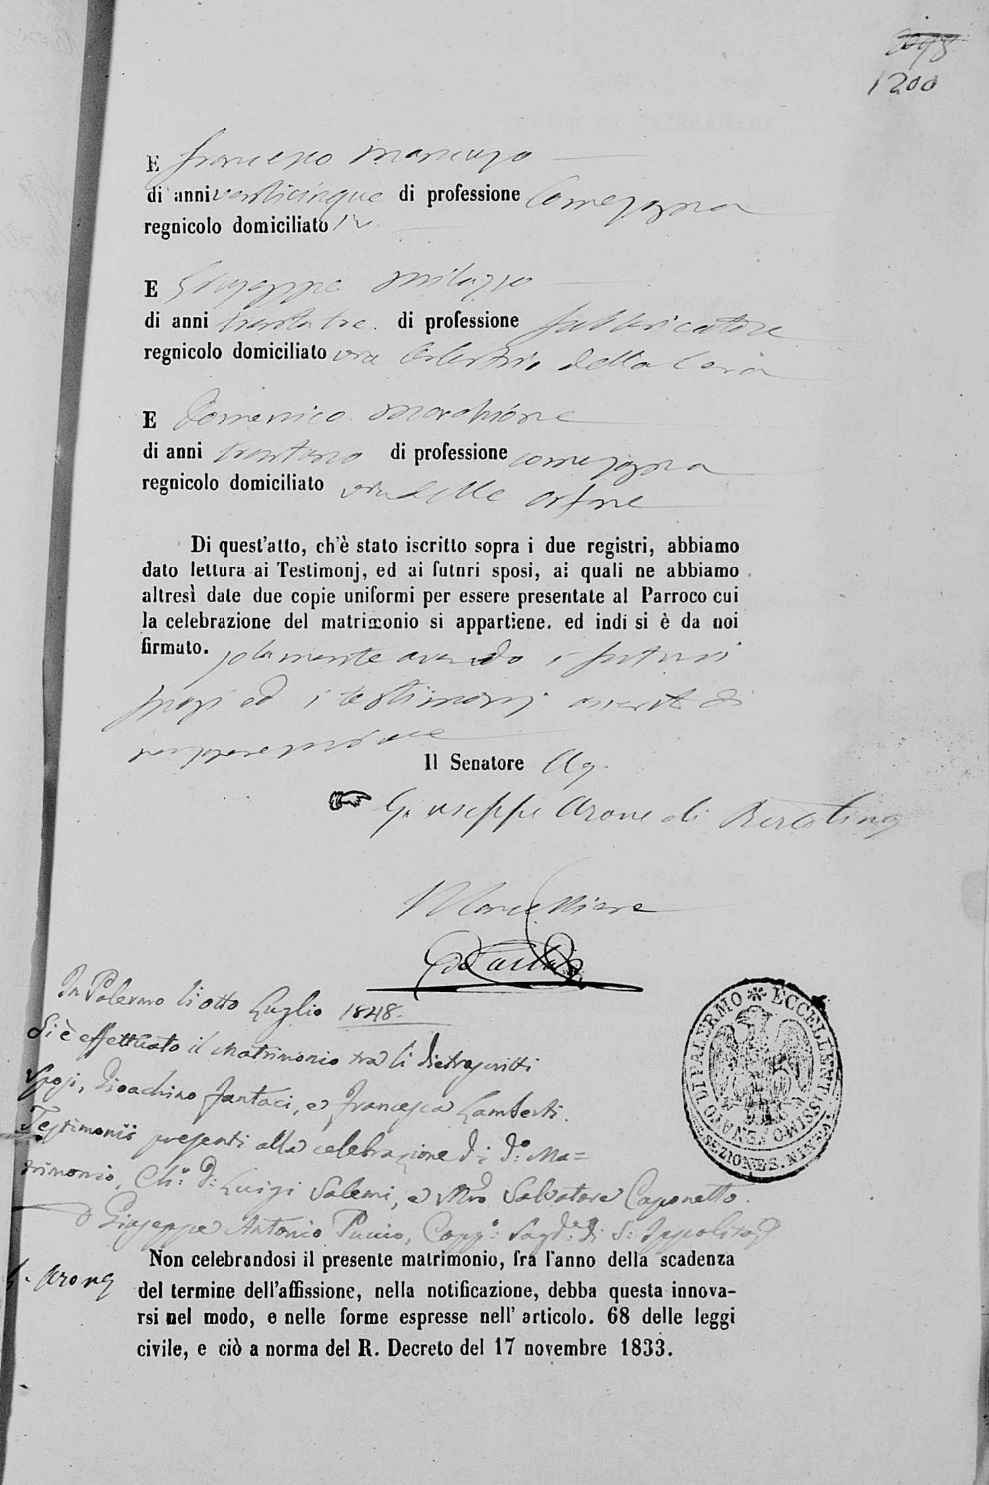 1200
E Francesco Mancuso
di anni venticinque di professione
regnicolo domiciliato ivi
E Giuseppe Milazzo
di anni trentatre di professione fabbricatore
regnicolo domiciliato via Celestrio della Cera
E Domenico Marchione
di anni trentuno di professione
regnicolo domiciliato via delle Orfane
Di quest'atto, ch'è stato iscritto sopra i due registri, abbiamo
dato lettura ai Testimonj, ed ai futnri sposi, ai quali ne abbiamo
altresì date due copie uniformi per essere presentate al Parroco cui
la celebrazione del matrimonio si appartiene. ed indi si è da noi
firmato. solamente avendo i futuri
sposi ed i testimonj asserito di
non sapere scrivere
Il Senatore
Giuseppe Arone di
In Palermo li otto Luglio 1848.
Si è effettuato il Matrimonio tra li dietroscritti
Sposi, Gioachino Fantaci, e Francesca Lamberti.
Testimonii presenti alla celebrazione di do: Ma=
trimonio, Chio: D: Luigi Salemi, e Mro Salvatore Caponetto.
Giuseppe Antonio Puccio, Capp: Sagde: di S: Ippolito
G. Arone
SENATO DI PALERMO ECCELLENTISSIMO
Non celebrandosi il presente matrimonio, fra l'anno della scadenza
del termine dell'affissione, nella notificazione, debba questa innova-
rsi nel modo, e nelle forme espresse nell' articolo. 68 delle leggi
civile, e ciò a norma del R. Decreto del 17 novembre 1833.